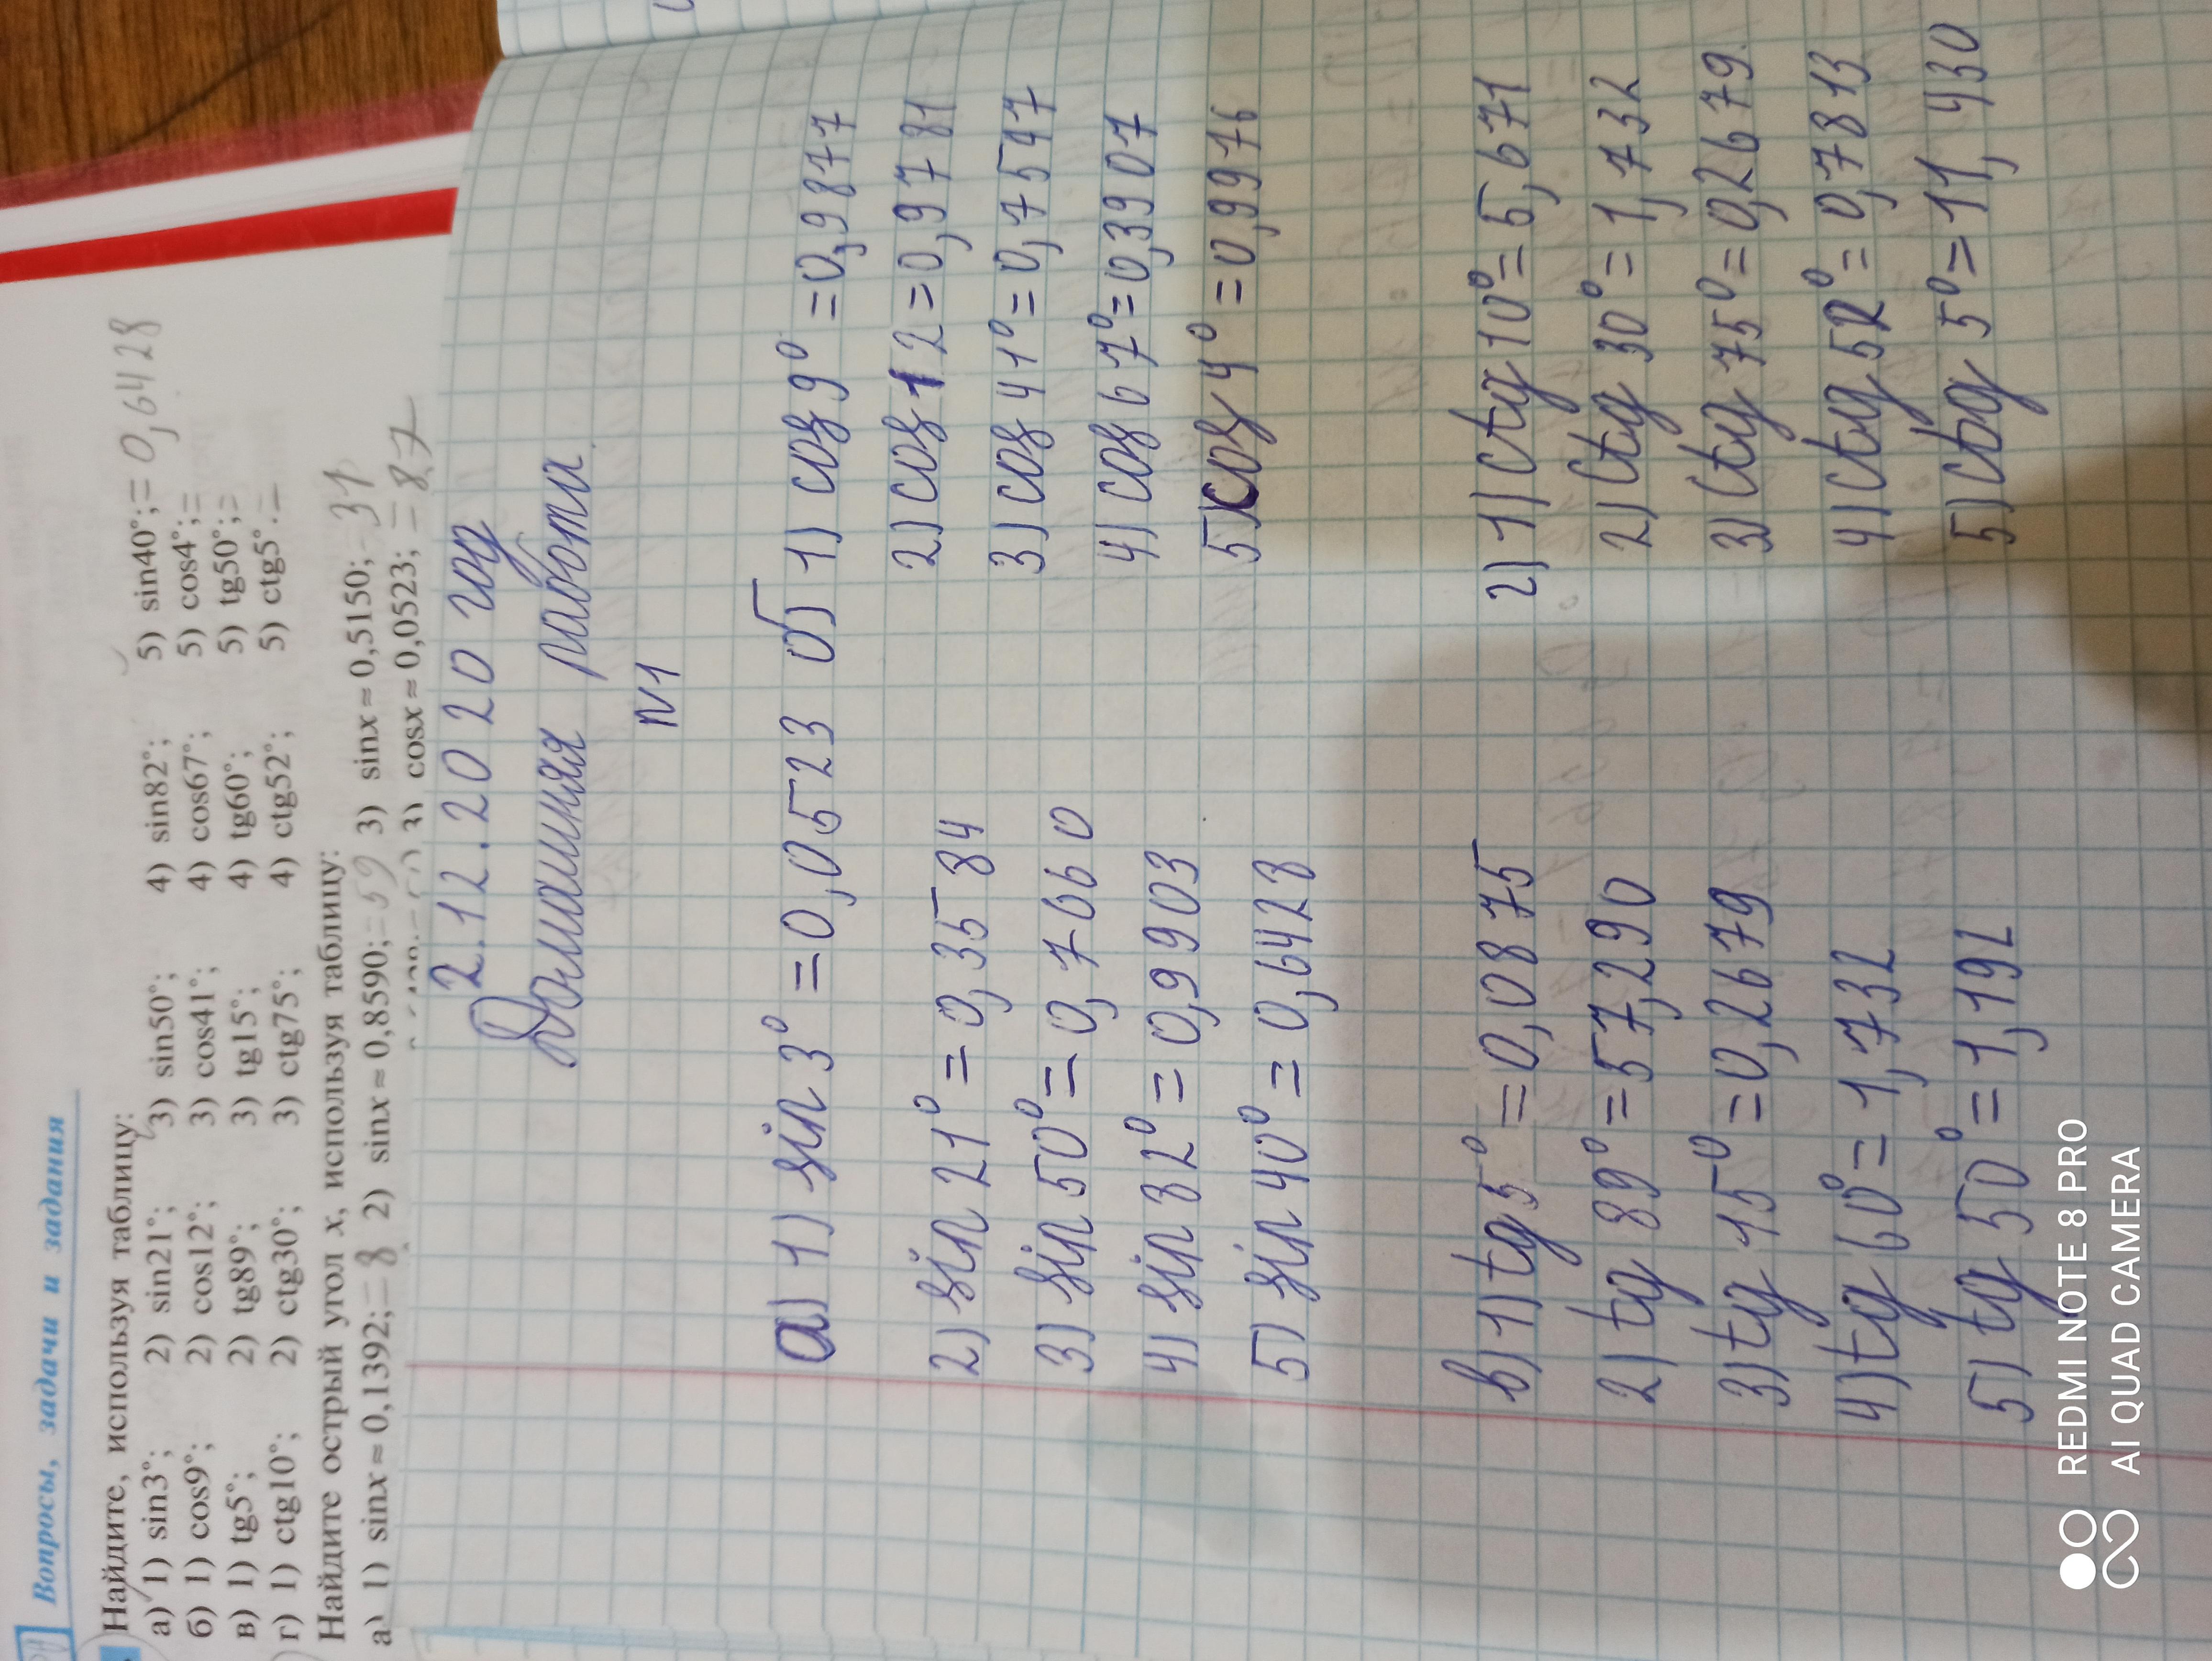 Вопросы, задачи и задания
Найдите, используя таблицу:
а) 1) sin3°; 2) sin21°; 3) sin50°; 4) sin82°; 5) sin40°; = 0,6428
б) 1) cos9°; 2) cos12°; 3) cos41°; 4) cos67°; 5) cos4°; =
в) 1) tg5°; 2) tg89°; 3) tg15°; 4) tg60°; 5) tg50°; =
г) 1) ctg10°; 2) ctg30°; 3) ctg75°; 4) ctg52°; 5) ctg5°. =
Найдите острый угол x, используя таблицу:
а) 1) sinx ≈ 0,1392; = 8 2) sinx ≈ 0,8590; = 59 3) sinx ≈ 0,5150; - 31
3) cosx ≈ 0,0523; = 87
2.12.2020 год
Домашняя работа
N1
а) 1) sin 3° = 0,0523
2) sin 21° = 0,3584
3) sin 50° = 0,7660
4) sin 82° = 0,9903
5) sin 40° = 0,6428
б) 1) cos 9° = 0,9877
2) cos 12 = 0,9781
3) cos 41° = 0,7547
4) cos 67° = 0,3907
5) cos 4° = 0,9976
в) 1) tg 5° = 0,0875
2) tg 89° = 57,290
3) tg 15° = 0,2679
4) tg 60° = 1,732
5) tg 50° = 1,192
г) 1) ctg 10° = 5,671
2) ctg 30° = 1,732
3) ctg 75° = 0,2679
4) ctg 52° = 0,7813
5) ctg 5° = 11,430
REDMI NOTE 8 PRO
AI QUAD CAMERA